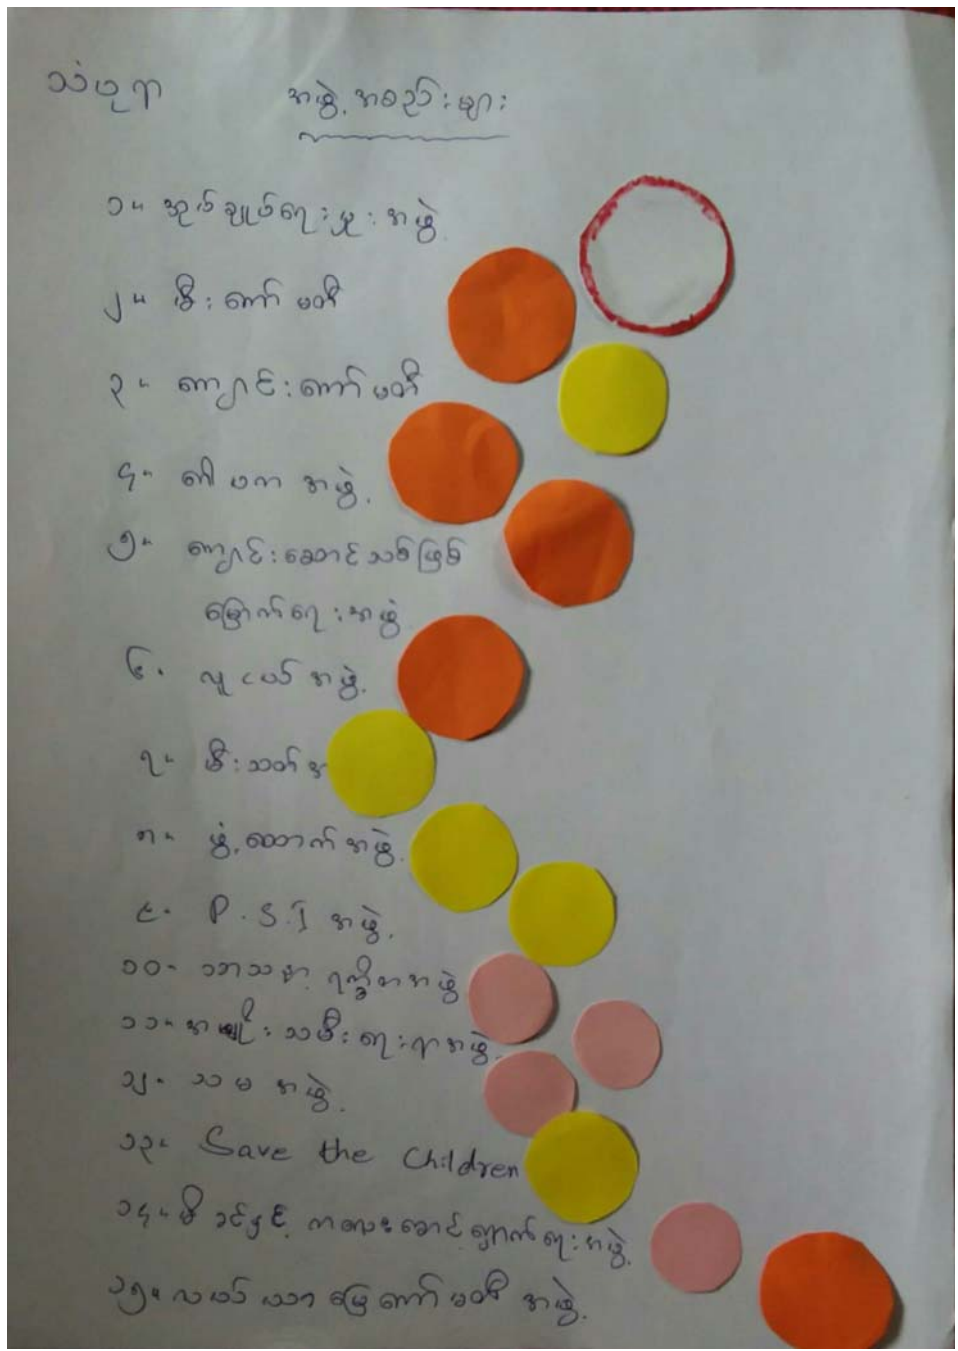 သံဖုရာ အဖွဲ့အစည်းများ
၁။ အုပ်ချုပ်ရေးမှူးအဖွဲ့
၂။ မီးကော်မတီ
၃။ ကျောင်းကော်မတီ
၄။ ကာမကအဖွဲ့
၅။ ကျောင်းဆောင်သစ်ဖြစ်
မြောက်ရေးအဖွဲ့
၆။ လူငယ်အဖွဲ့
၇။ မီးသတ်အ
၈။ ဖွံ့ထောက်အဖွဲ့
၉။ P.S.I အဖွဲ့
၁၀။ ဘာသာရက္ခိတအဖွဲ့
၁၁။ အမျိုးသမီးရေးရာအဖွဲ့
၁၂။ သမအဖွဲ့
၁၃။ Save the Children
၁၄။ မိခင်နှင့်ကလေးစောင့်ရှောက်ရေးအဖွဲ့
၁၅။ လယ်ယာမြေကော်မတီအဖွဲ့